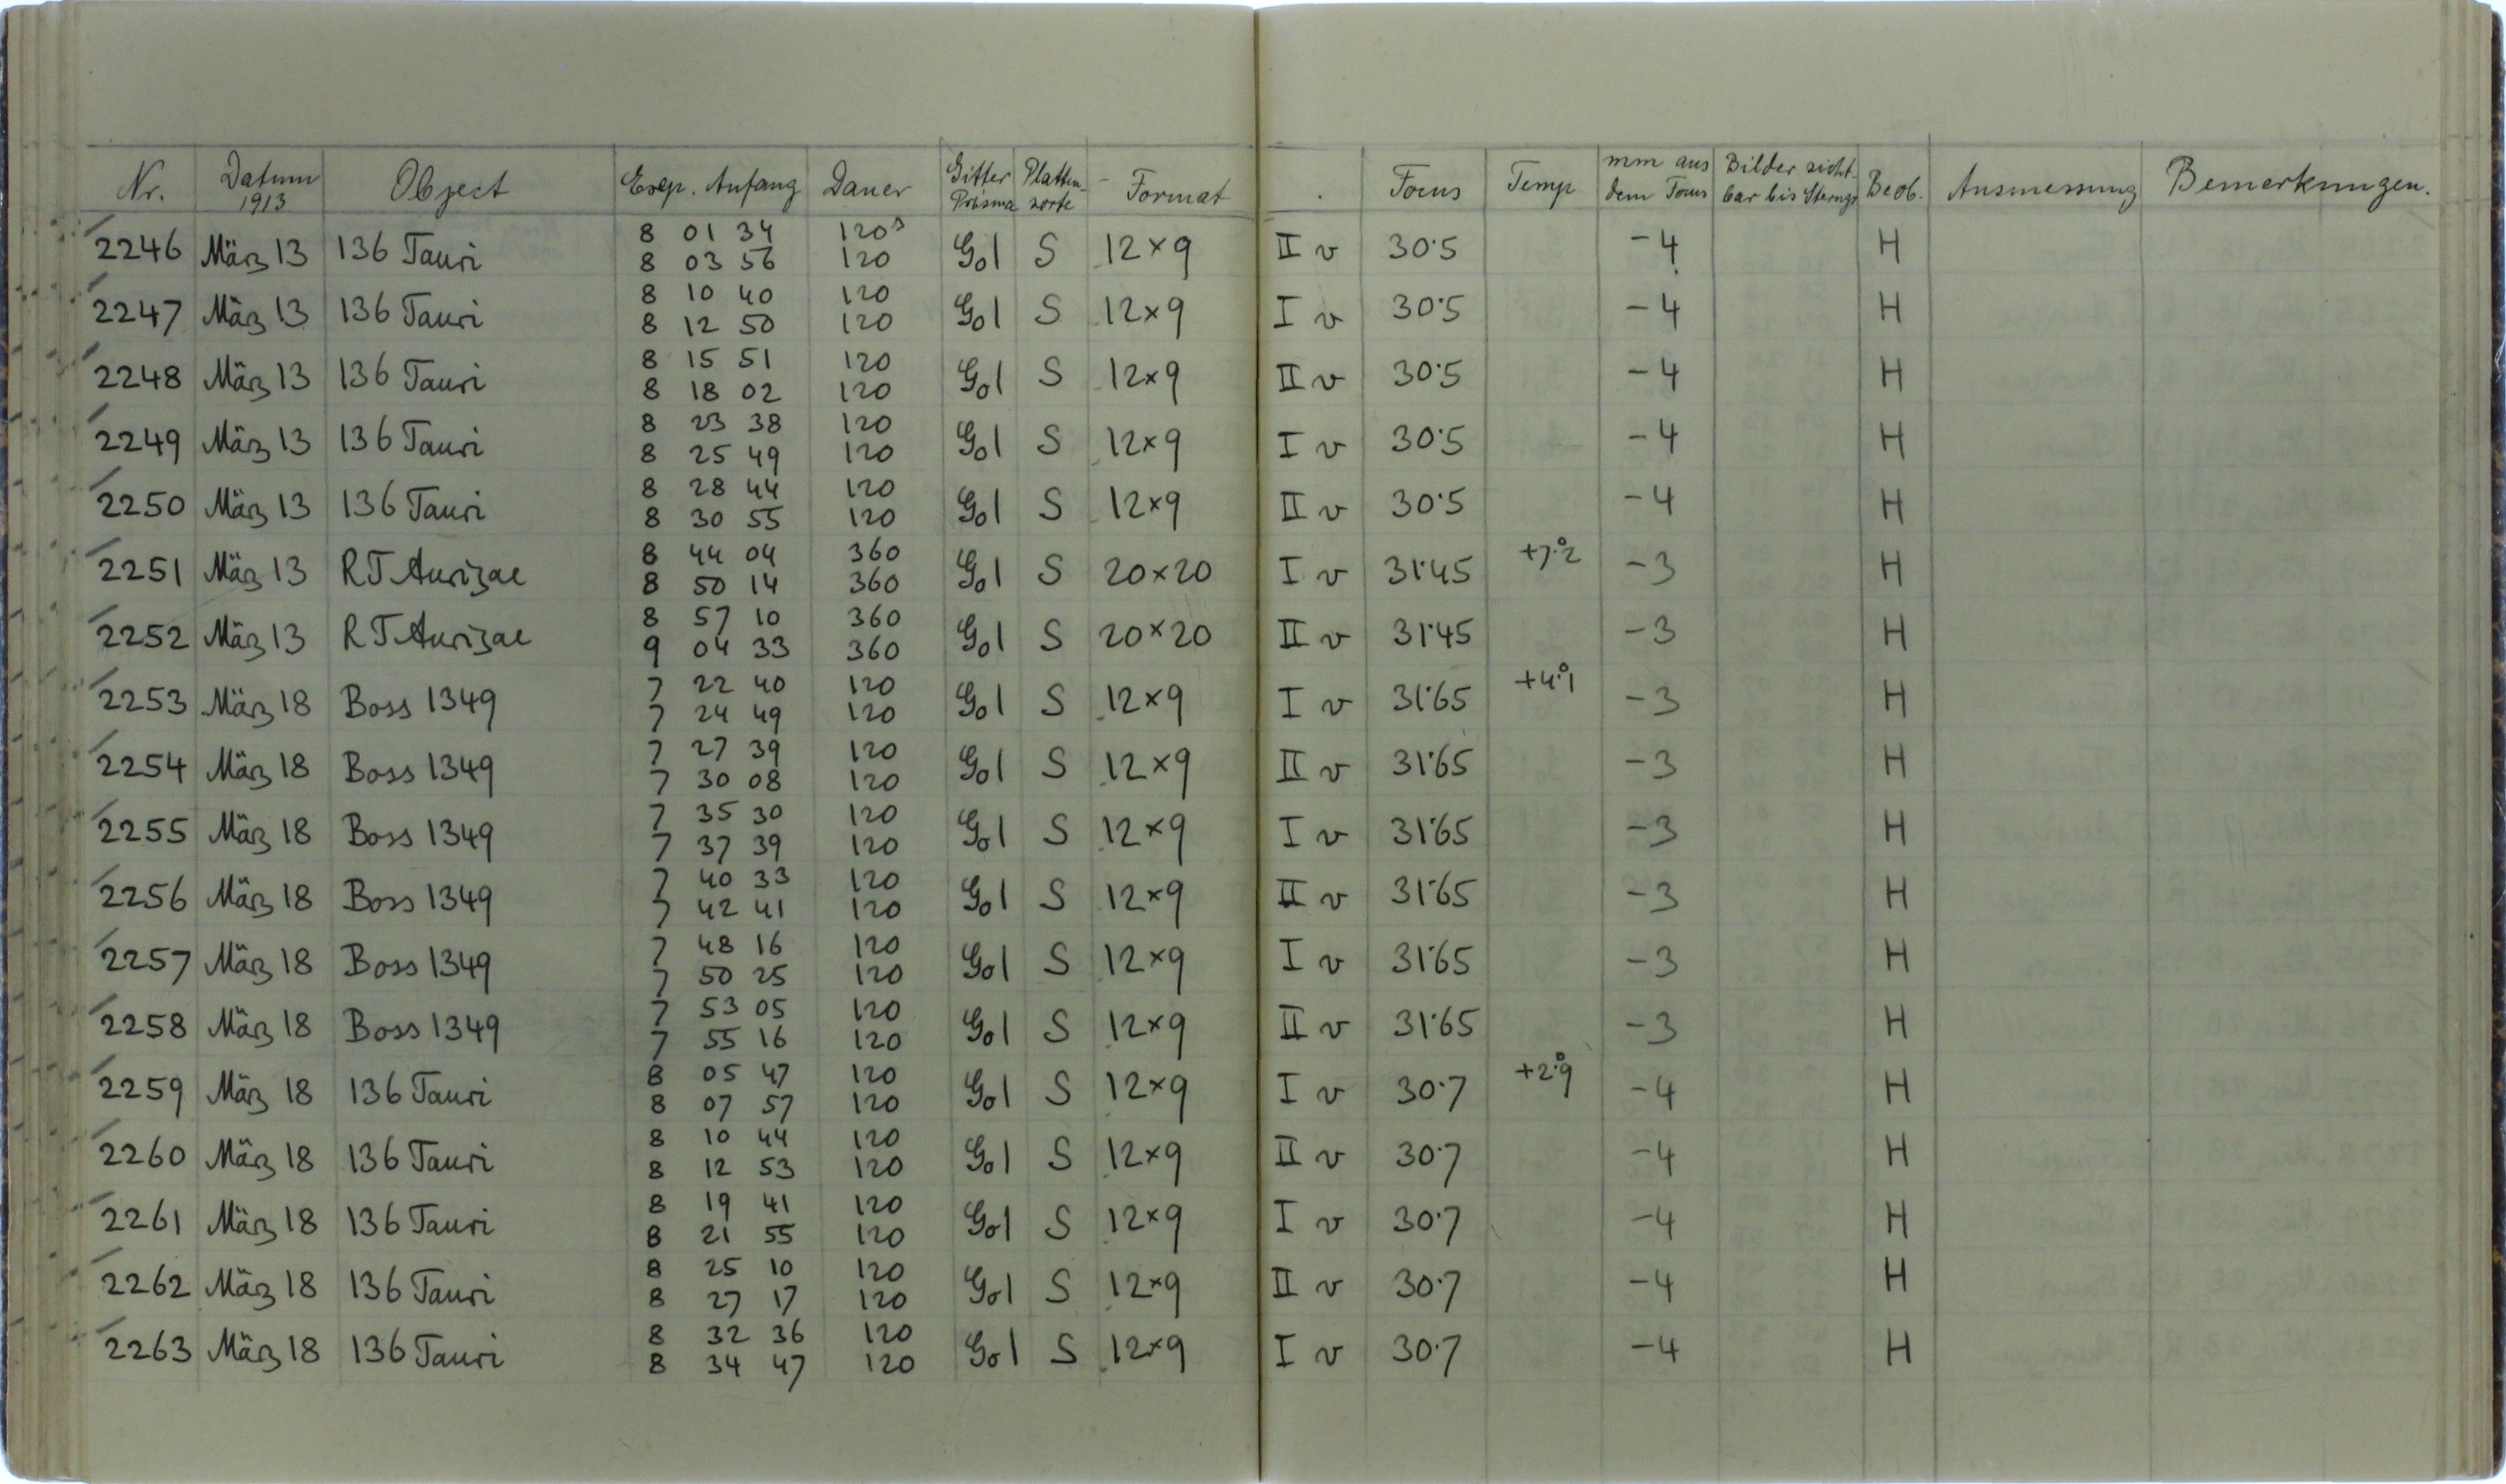 Nr. Datum 1913 Object Exp. Anfang Dauer Gitter Prisma Platten-sorte Format . Focus Temp. mm aus dem Focus Bilder sicht-bar bis Sterngr. Beob. Ausmessung Bemerkungen.
2246 März 13 136 Tauri 8 01 34 120s G01 S 12×9 II v 30·5 -4 H
8 03 56 120
2247 März 13 136 Tauri 8 10 40 120 G01 S 12×9 I v 30·5 -4 H
8 12 50 120
2248 März 13 136 Tauri 8 15 51 120 G01 S 12×9 II v 30·5 -4 H
8 18 02 120
2249 März 13 136 Tauri 8 23 38 120 G01 S 12×9 I v 30·5 -4 H
8 25 49 120
2250 März 13 136 Tauri 8 28 44 120 G01 S 12×9 II v 30·5 -4 H
8 30 55 120
2251 März 13 RT Aurigae 8 44 04 360 G01 S 20×20 I v 31·45 +7·°2 -3 H
8 50 14 360
2252 März 13 RT Aurigae 8 57 10 360 G01 S 20×20 II v 31·45 -3 H
9 04 33 360
2253 März 18 Boss 1349 7 22 40 120 G01 S 12×9 I v 31·65 +4·°1 -3 H
7 24 49 120
2254 März 18 Boss 1349 7 27 39 120 G01 S 12×9 II v 31·65 -3 H
7 30 08 120
2255 März 18 Boss 1349 7 35 30 120 G01 S 12×9 I v 31·65 -3 H
7 37 39 120
2256 März 18 Boss 1349 7 40 33 120 G01 S 12×9 II v 31·65 -3 H
7 42 41 120
2257 März 18 Boss 1349 7 48 16 120 G01 S 12×9 I v 31·65 -3 H
7 50 25 120
2258 März 18 Boss 1349 7 53 05 120 G01 S 12×9 II v 31·65 -3 H
7 55 16 120
2259 März 18 136 Tauri 8 05 47 120 G01 S 12×9 I v 30·7 +2·°9 -4 H
8 07 57 120
2260 März 18 136 Tauri 8 10 44 120 G01 S 12×9 II v 30·7 -4 H
8 12 53 120
2261 März 18 136 Tauri 8 19 41 120 G01 S 12×9 I v 30·7 -4 H
8 21 55 120
2262 März 18 136 Tauri 8 25 10 120 G01 S 12×9 II v 30·7 -4 H
8 27 17 120
2263 März 18 136 Tauri 8 32 36 120 G01 S 12×9 I v 30·7 -4 H
8 34 47 120